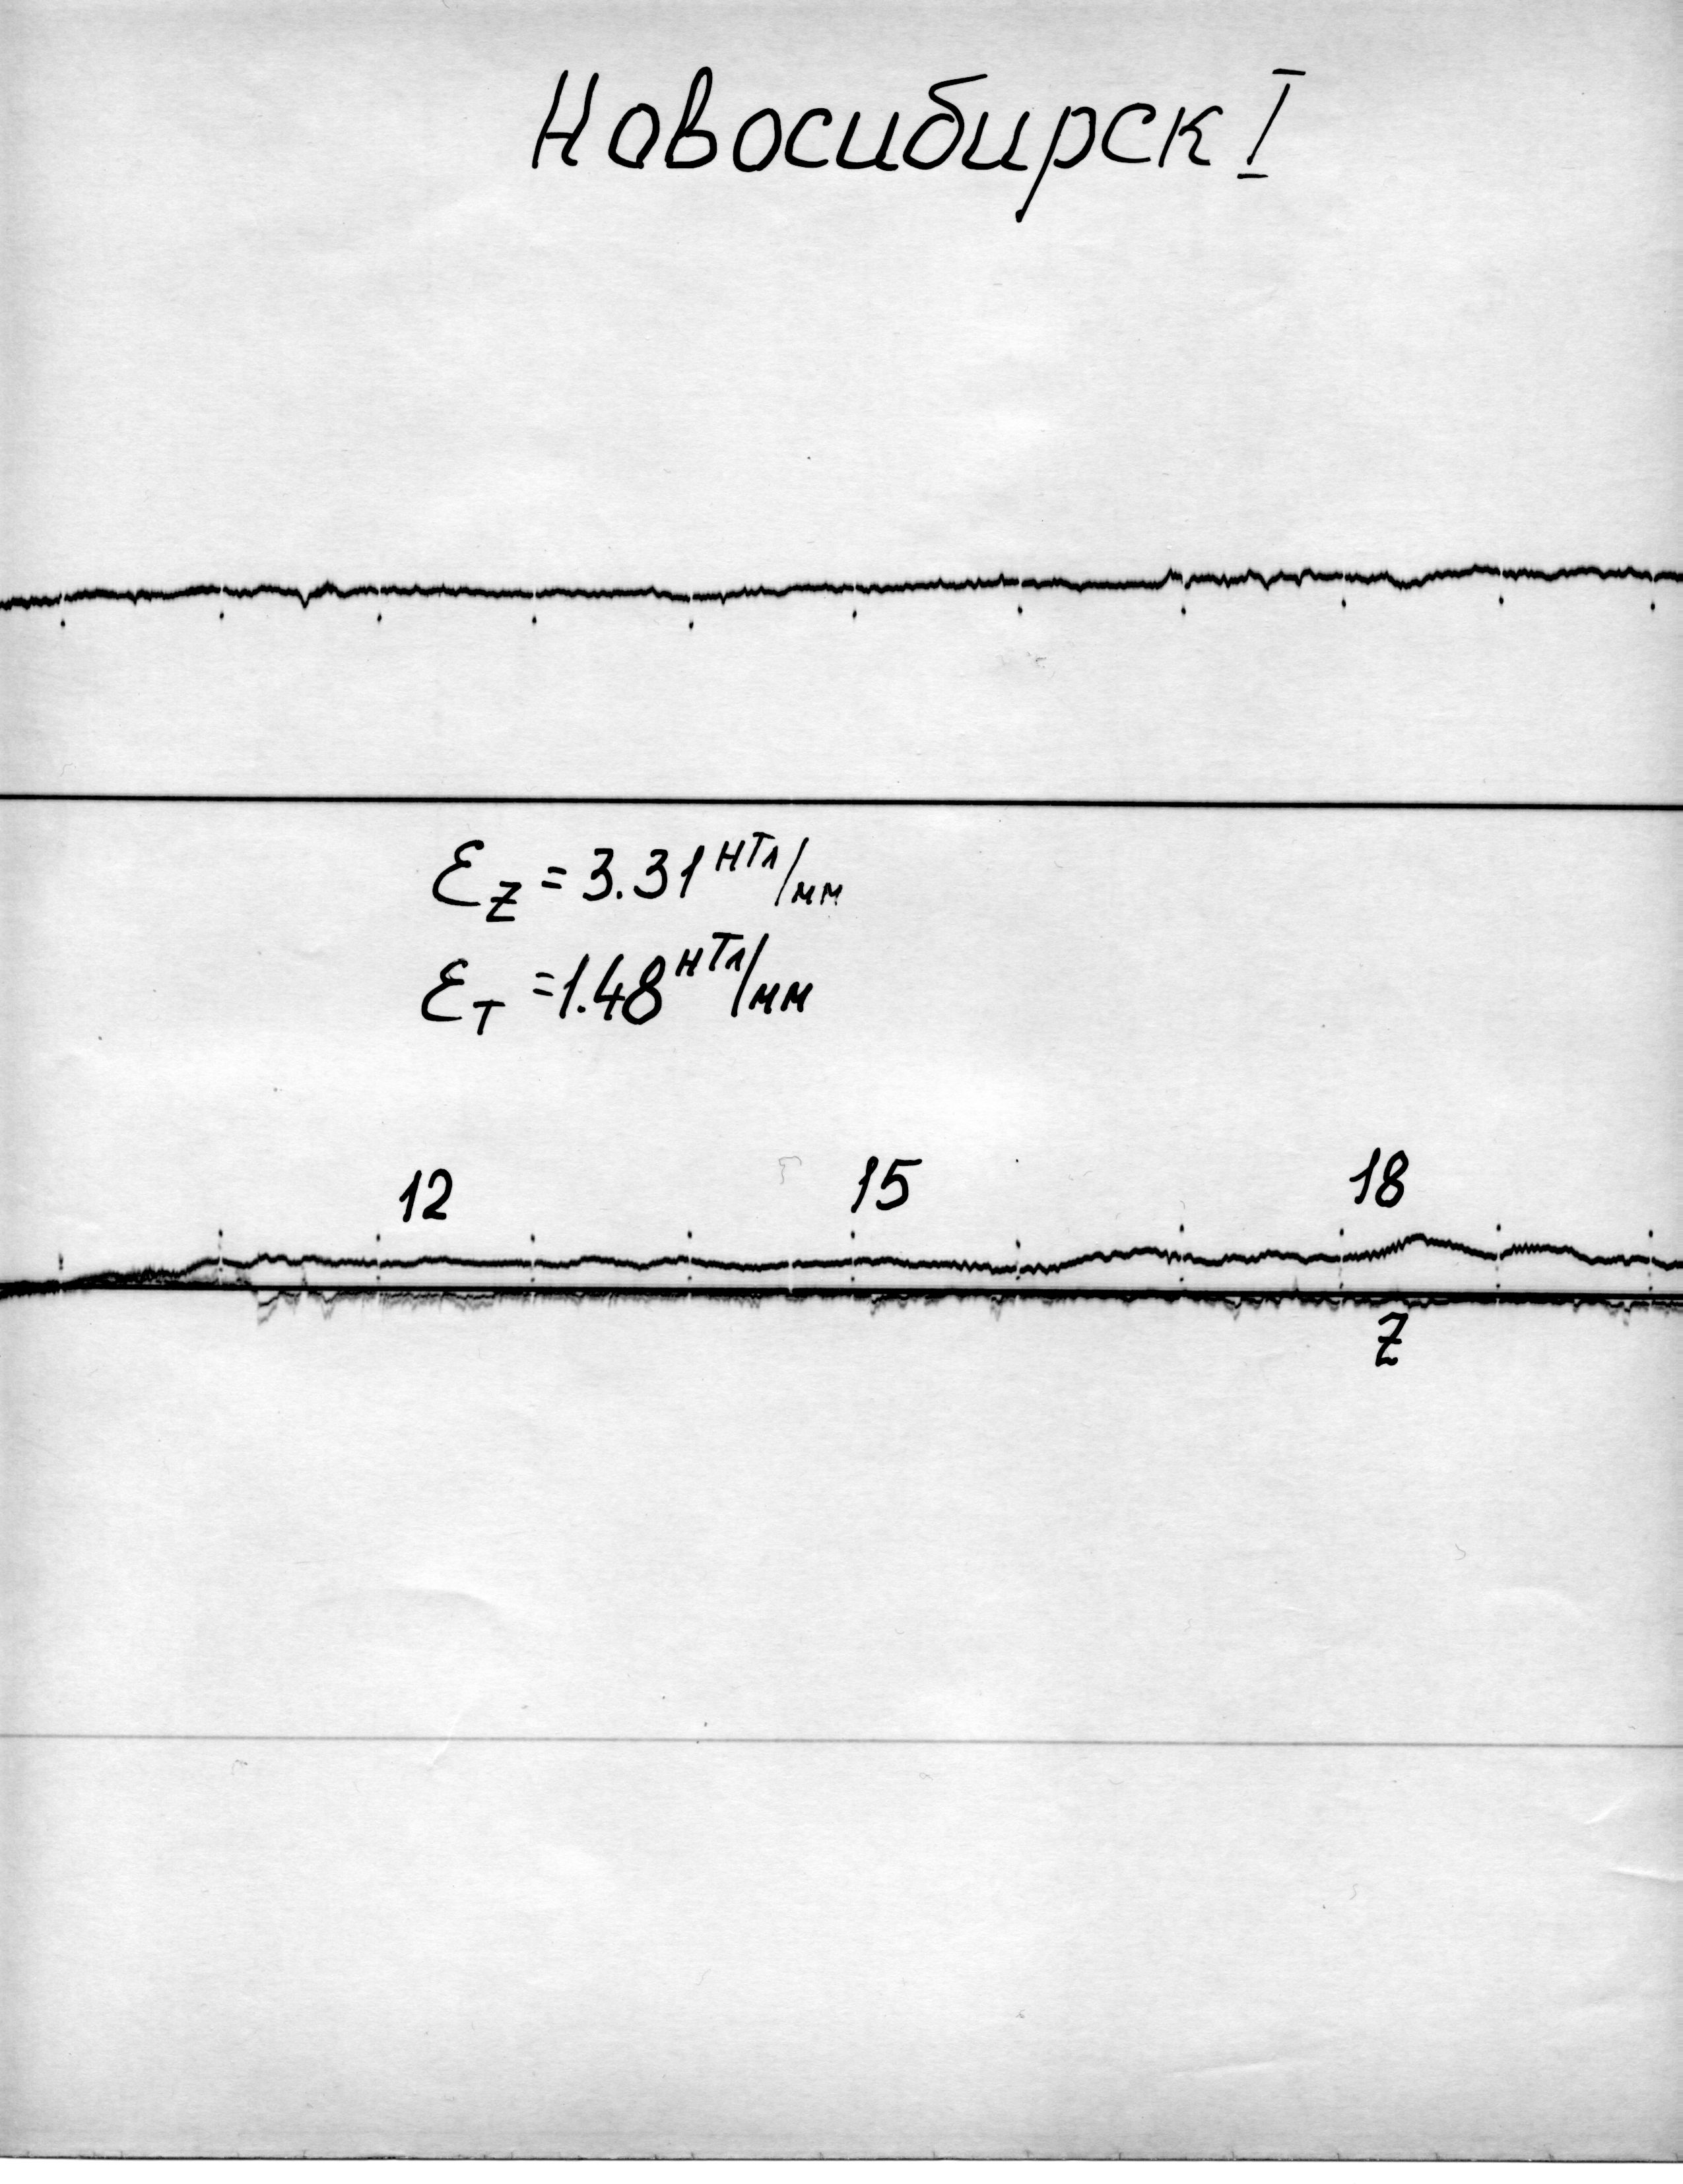 Новосибирск I
Ɛz = 3.31 нТл/мм
Ɛт = 1.48 нТл/мм
12 15 18
Z